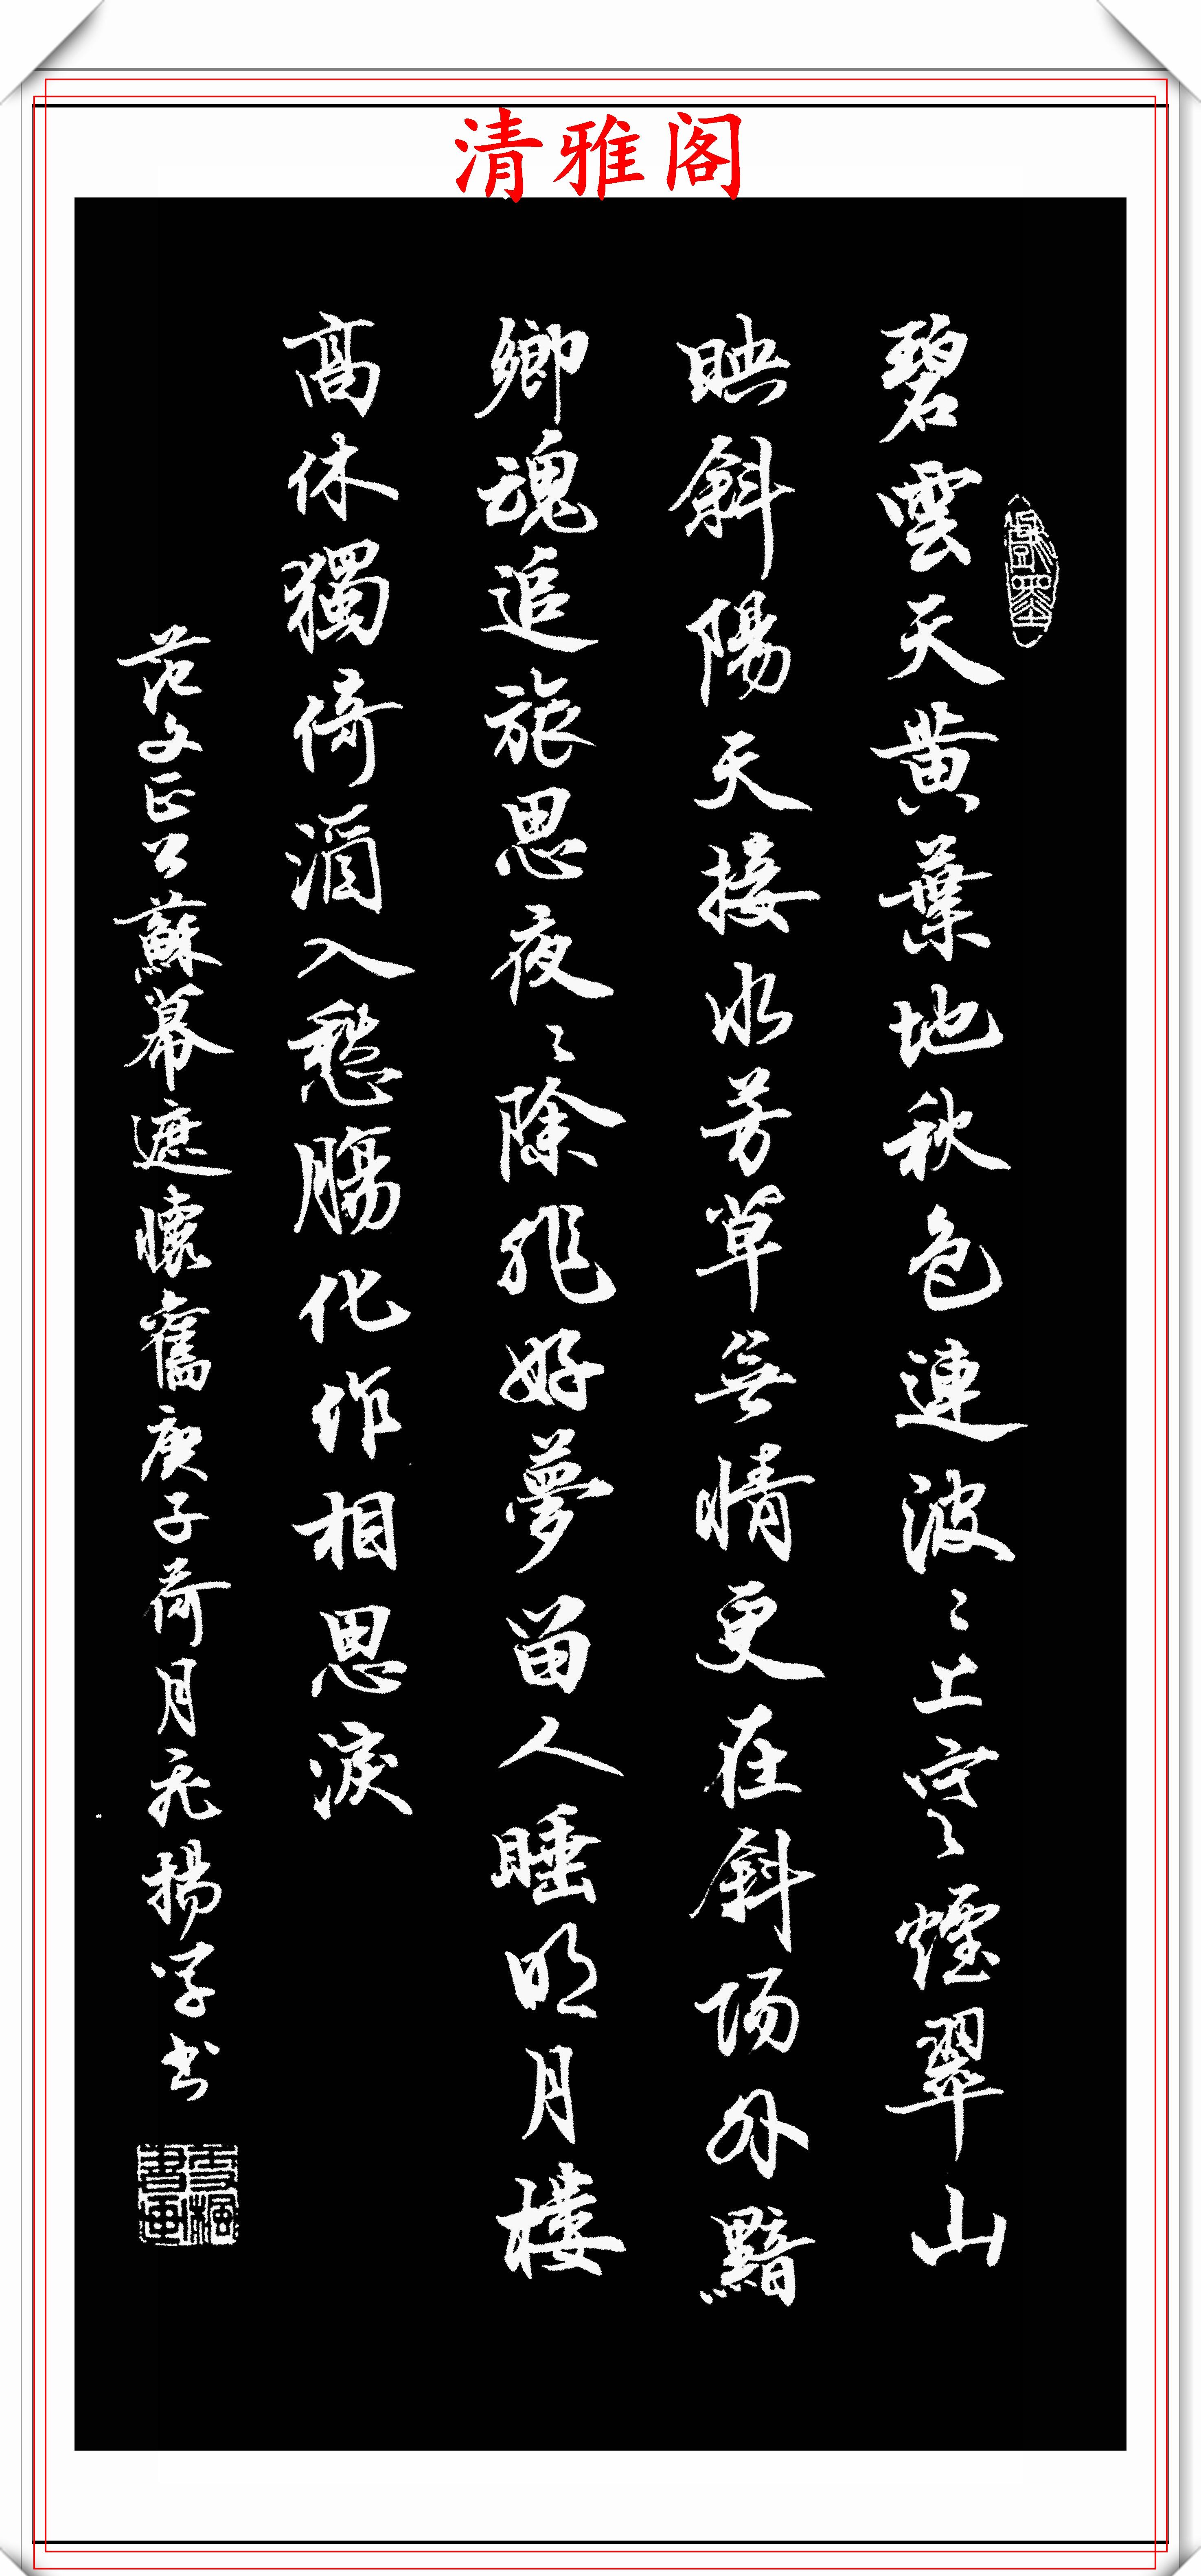 清雅阁
碧雲天黄葉地秋色連波〻上寒煙翠山
映斜陽天接水芳草無情更在斜陽外黯
鄉魂追旅思夜〻除非好夢留人睡明月樓
高休獨倚酒入愁腸化作相思淚
范文正公蘇幕遮懷舊庚子荷月元揚学书